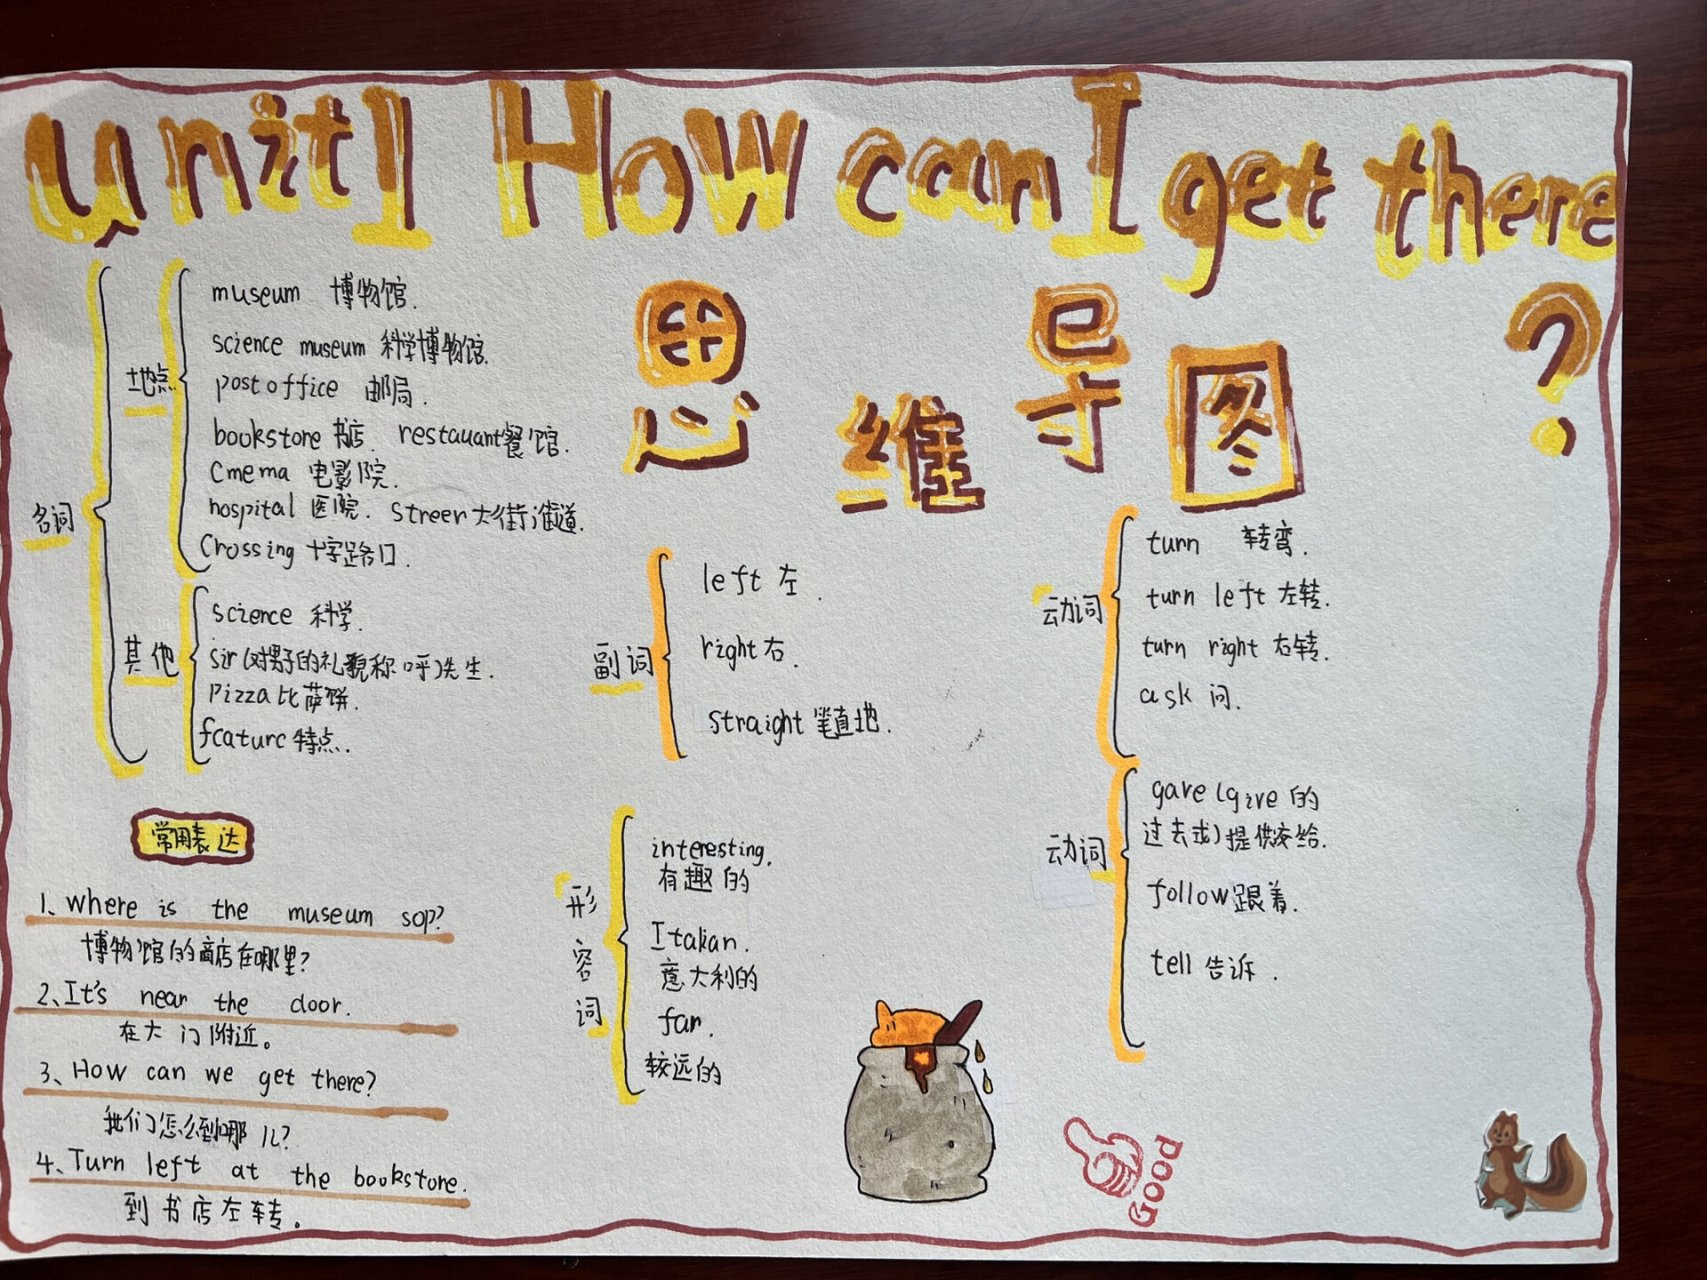 unit1 How can I get there
?
思维导图
名词
地点
museum 博物馆.
science museum 科学博物馆.
post office 邮局.
bookstore 书店. restauant餐馆.
Cmema 电影院.
hospital 医院. Streer 大街;街道.
Crossing 十字路口.
其他
science 科学.
sir (对男子的礼貌称呼)先生.
Pizza 比萨饼.
feature 特点.
副词
left 左.
right 右.
straight 笔直地.
动词
turn 转弯.
turn left 左转.
turn right 右转.
ask 问.
动词
gave (give 的
过去式)提供;交给.
follow 跟着.
tell 告诉.
形容词
interesting.
有趣的
Italian.
意大利的
far.
较远的
常用表达
1、Where is the museum sop?
博物馆的商店在哪里?
2、It's near the door.
在大门附近。
3、How can we get there?
我们怎么到哪儿?
4、Turn left at the bookstore.
到书店左转。
Good